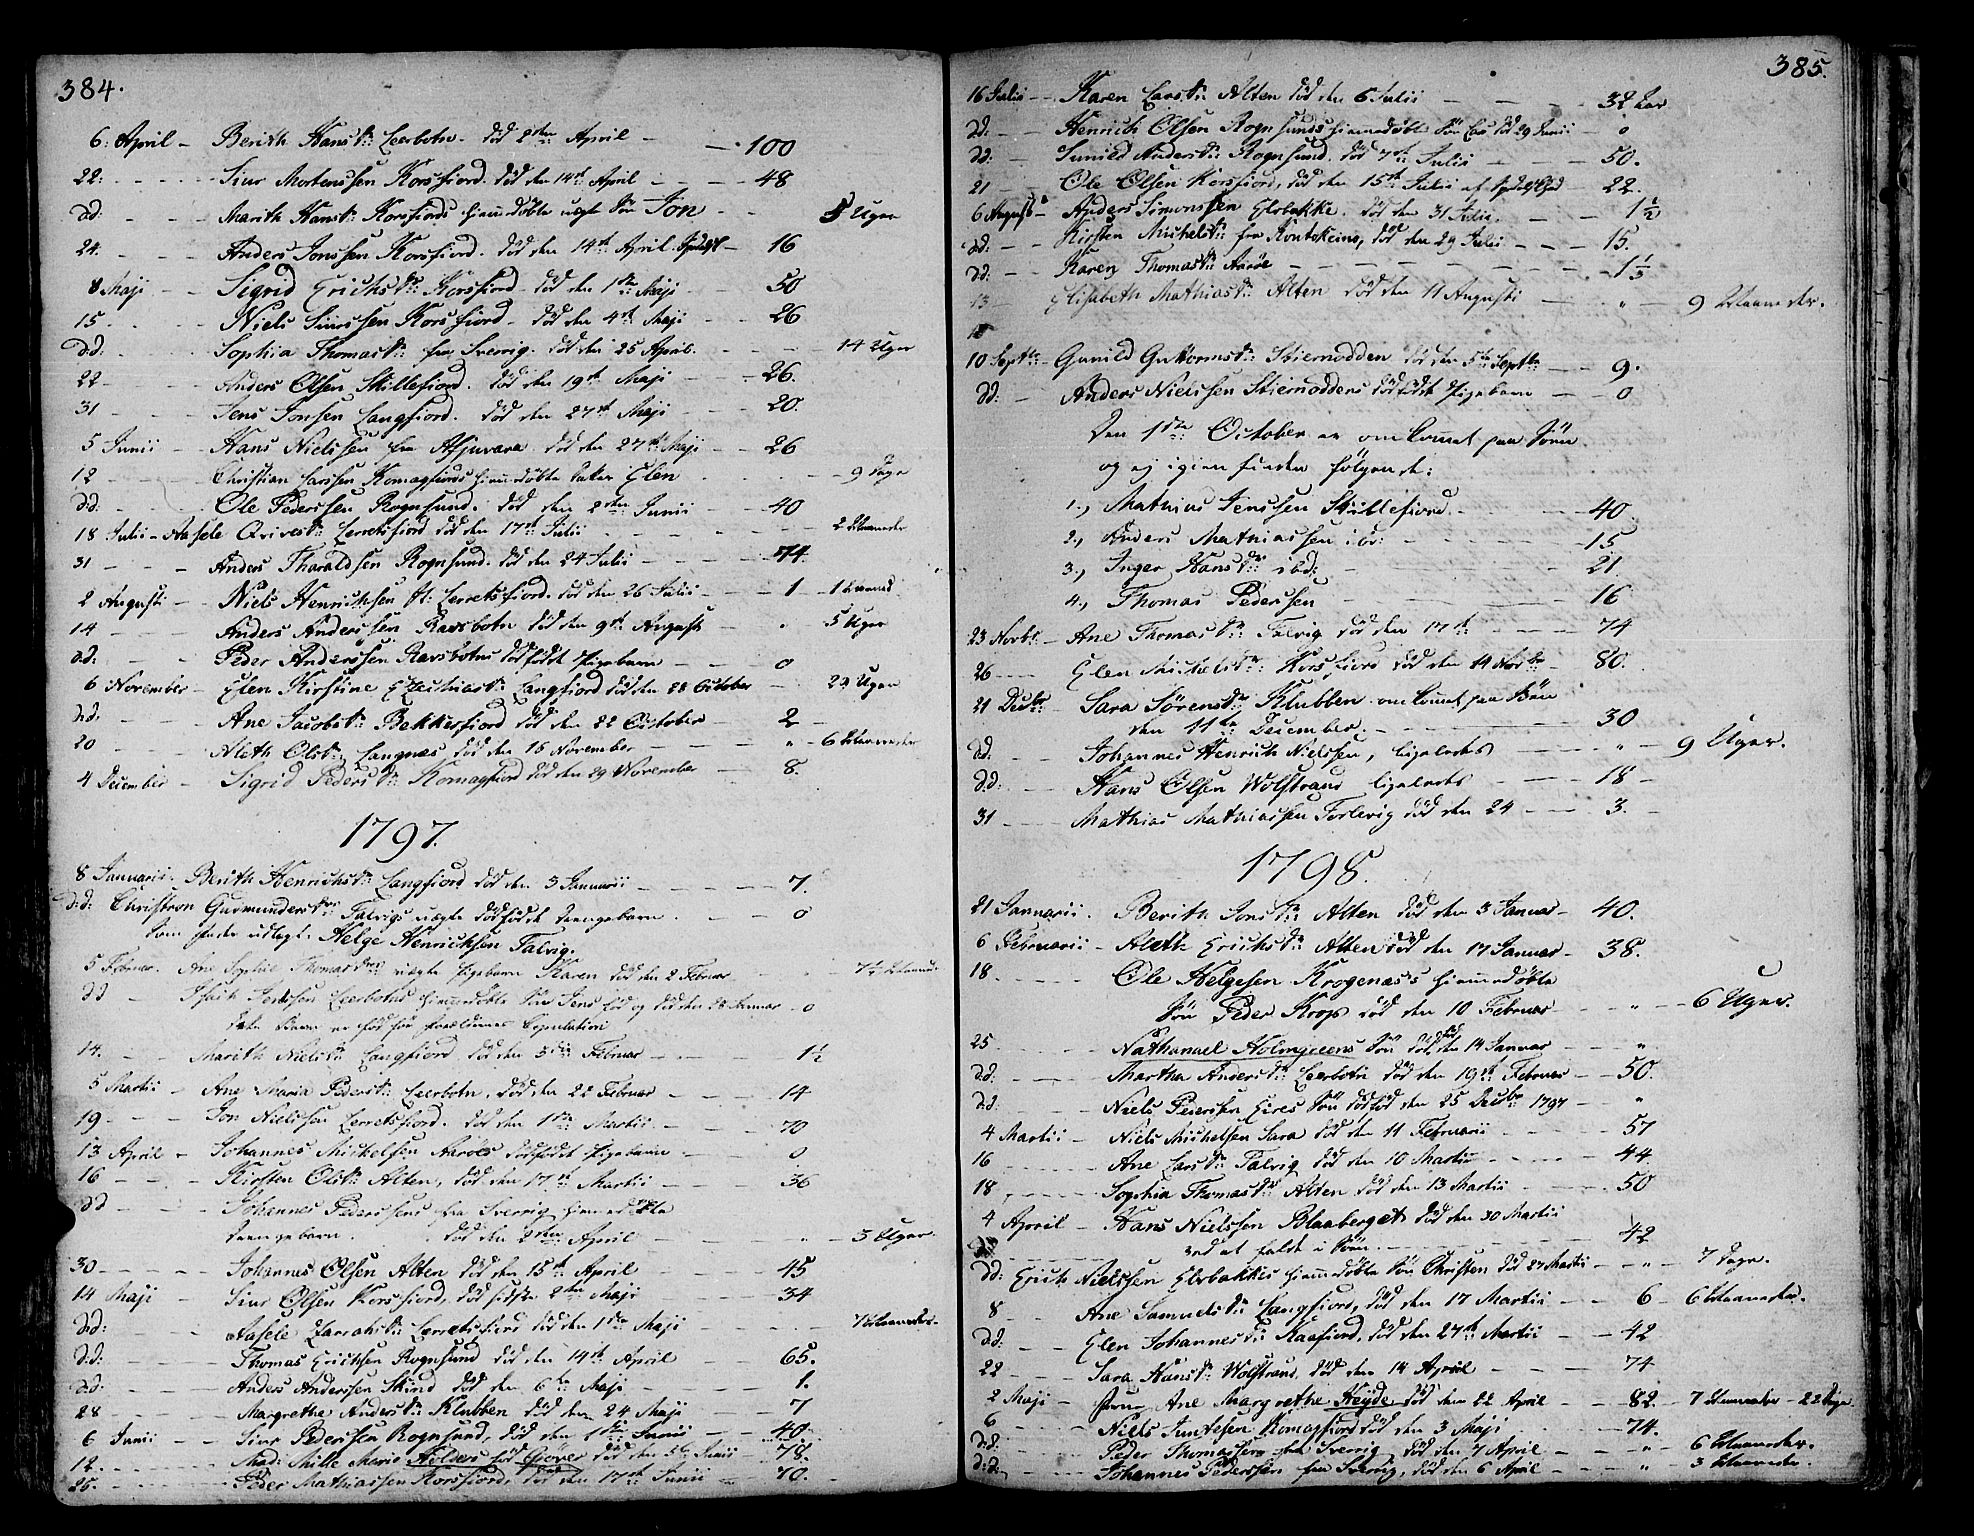 384.
6. April - Berith Hansd: Leerbotn. død 2den April - 100
22. - Siur Mortenssen Korsfiord. død den 14de April - 48
dd: - Marith Hansd: Korsfiords hiemedøbte uægte Søn Jon - 5 Uger
24. - Anders Jonssen Korsfiord. død den 14de April - 16
8 Maji - Sigrid Erichsd: Korsfiord - død den 1ste Maji - 50
15 - Niels Siurssen Korsfiord - død den 4de Maji - 26
d:d: - Sophia Thomasd: fra Sverrig. død den 25 April. - 14 Uger
22 - Anders Olsen Skillefiord. død den 19de Maji - 26.
31 - Jens Jonsen Langfiord. død den 27de Maji - 20.
5 Junii - Hans Nielssen fra Afjuvara død den 27de Maji - 26
12 - Christian Larssen Komagfiords hiemedøbte Datter Elen - 9 Dage
d:d: - Ole Pederssen Rognsund. død den 2den Junii - 40
18 Julii - Aasele Qvivesd: Lerretsfiord død den 17de Julii - 2 Maaneder
31 - Anders Tharaldsen Rognsund. død den 24 Julii - 74.
2 Augusti - Niels Henrichsen Lerretsfiord. død den 26 Julii - 1 - 1 Maaned
14 - Anders Anderssen Ravsbotn død den 9de Augusti - 5 Uger
dd: - Peder Anderssen Ravsbotns dødfødt Pigebarn - 0
6 November - Elen Kirstine Ezechiasd: Langfiord død den 28 October - 23 Uger
d:d: - Ane Jacobsd: Bekkerfiord død den 22 October - 2
20 - Aleth Olsd: Langnæs død den 16 November - " - 6 Maaneder
4 December - Sigrid Pedersd: Komagfiord død den 29 November - 8.
1797.
8 Januarii. Berith Henrichsd: Langfiord død den 3 Januarii - 7.
d:d: Christron Gudmundersd: Talvigs uægte dødfødt Drengebarn. - 0
som Fader udlagt. Helge Henrichsen Talvig.
5 Februar. Ane Sophie Thomasd: uægte Pigebarn Karen død den 2 Februar - 7½ Maaned
dd - Isach Jenssen Leerbotns hiemedøbte Søn Jens fød og død den 28 Januar - 0
dette Barn er fød før Forældrenes Copulation
14. - Marith Nielsd: Langfiord død den 3die Februar - 1½
5 Martii - Ane Maria Pedersd: Leerbotn, død den 22 Februar - 14
19 - Jon Nielssen Lerretsfiord. død den 1ste Martii - 70
13 April - Johannes Mickelsen Aarøes dødfødt Pigebarn - 0
16 - Kirsten Olsd: Alten, død den 17de Martii - 36
dd - Johannes Pederssens fra Sverrig hiemedøbte
Drengebarn. død den 2den April - " - 3 Uger
30 - Johannes Olsen Alten død den 15de April - 45
14 Maji - Siur Olsen Korsfiord, død sidste 2den Maji - 34
d:d: - Aasele Zarrahsd: Lerretsfiord død den 1ste Maji - 7 Maaneder.
d:d: - Thomas Erichsen Rognsund død den 14de April - 65.
d:d: - Anders Anderssen Skind død den 6te Maji - 1.
28 - Margrethe Andersd: Klubben død den 24 Maji - 7
6 Junii - Siur Pederssen Rognsund, død den 1ste Junii - 40.
12. - Mad: Mille Marie Hilders fød Giöver død den 26 Junii - 78.
25. - Peder Mathiassen Korsfiord, død den 17de Junii - 70.
385.
16 Julii - Karen Larsd: Alten død den 6 Julii - 32 Aar
dd: - Henrich Olsen Rognsunds hiemedøbte Søn Lars død 29 Junii - 0
dd: - Gunild Andersd: Rognsund. død 7de Julii - 50.
21 - Ole Olsen Korsfiord, død den 15de Julii af Spedalskhed - 22.
6 Augusti - Anders Simonssen Elvbakke. død den 31 Julii. - 1½
dd: - Kirsten Michelsd: fra Koutokeino, død den 29 Julii - 15.
dd: - Karen Thomasd: Aarøe - 1½
13 - Elisabeth Mathiasd: Alten død den 11 Augusti - " - 9 Maaneder.
10 Septbr - Gunild Guttormsd: Stiernodden død den 5te Septbr - 9.
dd: - Anders Nielssen Stiernoddens dødfødt Pigebarn - 0
Den 1ste October er omkommet paa Søen
og ej igien funden følgende:
1., Mathias Jenssen Skillefiord - 40.
2., Anders Mathiassen ibd: - 15
3., Inger Hansd: ibd: - 21
4., Thomas Pederssen - 16
23 Novbr - Ane Thomasd: Talvig død den 17de - 74
26 - Elen Mickelsd: Korsfiord død den 14 Novbr - 80.
21 Decbr - Sara Sørensd: Klubben omkommet paa Søen
den 11te December. - 30
d:d. - Johannes Henrich Nielssen, ligeledes - " - 9 Uger.
d:d: - Hans Olsen Wolfstrand ligeledes - 18 -
31 - Mathias Mathiassen Torlevig død den 24 - 3. -
1798.
21 Januarii. Berith Jonsd: Alten død den 3 Januar - 40.
6 Februarii - Aleth Erichsd: Alten død den 17 Januar - 38.
18 - Ole Helgesen Krogenæss hiemedøbte
Søn Peder Krogs død den 10 Februar - " - 6 Uger.
25 - Nathanael Holmgreens Søn død den 14 Januar - "
d:d: - Martha Andersd: Leerbotn død den 19de Februar - 50.
d:d: - Niels Peiersen Eires Søn dødfød den 25 Decbr 1797 - "
4 Martii - Niels Michelsen Sara død den 11 Februarii - 57
16 - Ane Larsd: Talvig død den 10 Martii - 44
18 - Sophia Thomasd: Alten død den 13 Martii - 50
4 April - Hans Nielssen Blaaberget død den 30 Martii
ved at falde i Søen. - 42
dd: Erich Nielssen Elvbakkes hiemedøbte Søn Christen død 27 Martii - " - 7 Dage.
8 - Ane Samuelsd: Langfiord, død den 17 Martii - 6 - 6 Maaneder.
d:d: - Elen Johannesd: Kaafiord, død den 27de Martii - 42
22 - Sara Hansd: Wolfstrand, død den 14 April - 74
2 Maji - Ane Margrethe Heyde død den 22 April - 82. - 7 Maaneder - 22 Dage.
6 - Niels Komagfiord død den 3 Maji - 74.
d:d: - Peder Thomassen fra Sverrig, død den 7 April - " - 6 Maaneder.
d:d: - Johannes Pederssen fra Sverrig, død den 6 April - " - 3 Maaneder.